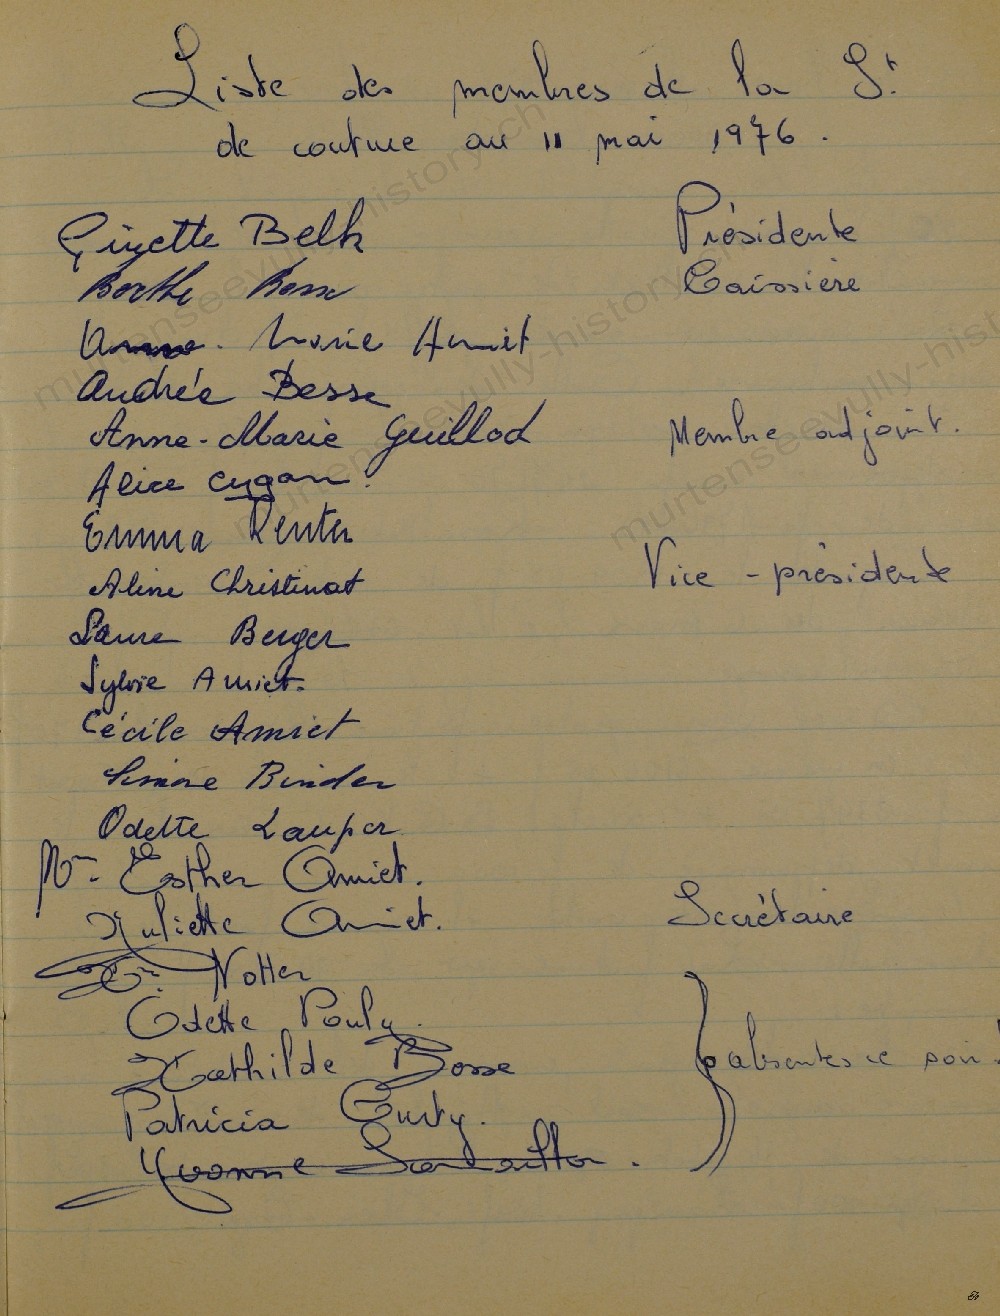 Liste des membres de la St.
de couture au 11 mai 1976.
Ginette Belk Présidente
Berthe Bosse Caissière
Marie Amiet
Andrée Besse
Anne-Marie Guillod Membre adjoint.
Alice Cygan.
Emma Renter
Aline Christinat Vice-présidente
Laure Berger
Sylvie Amiet.
Cécile Amiet
Simone Binder
Odette Lauper
Mme Esther Amiet.
Juliette Amiet. Secrétaire
Notter
Odette Pouly.
Mathilde Bosse absentes ce soir!
Patricia Gurty.
Yvonne
murtenseevully-history.ch
murtenseevully-history.ch
murtenseevully-history